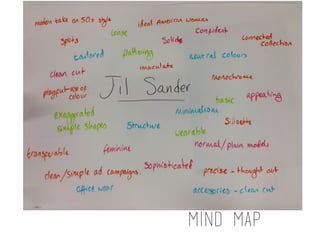 modern take on 50s style
ideal American women
spots
loose
Solids
confident
connected
collection
tailored
flattering
neutral colours
clean cut
immaculate
monochrome
playful use of
colour
Jil Sander
basic
appealing
exaggerated
simple shapes
minimalism
Structure
Siloette
wearable
transferable
feminine
normal/plain models
clean/simple ad campaigns.
Sophisticated
precise - thought out
office wear
accessories - clean cut
MIND MAP